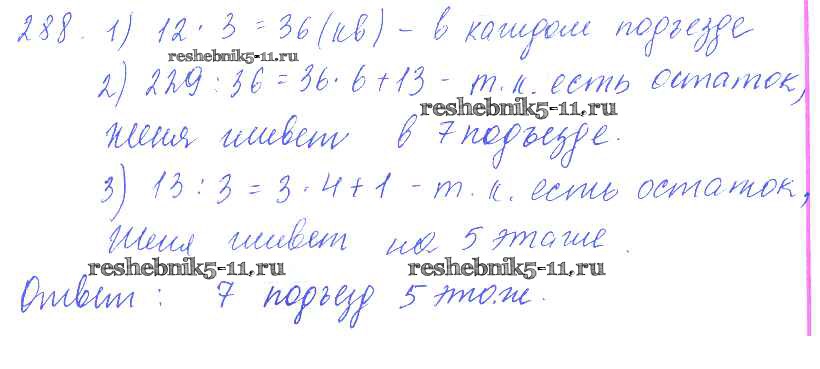 288. 1) 12 · 3 = 36 (кв) – в каждом подъезде
reshebnik5-11.ru
2) 229 : 36 = 36 · 6 + 13 - т. к. есть остаток,
reshebnik5-11.ru
Женя живет в 7 подъезде.
3) 13 : 3 = 3 · 4 + 1 - т. к. есть остаток,
Женя живет на 5 этаже.
reshebnik5-11.ru reshebnik5-11.ru
Ответ : 7 подъезд 5 этаж.